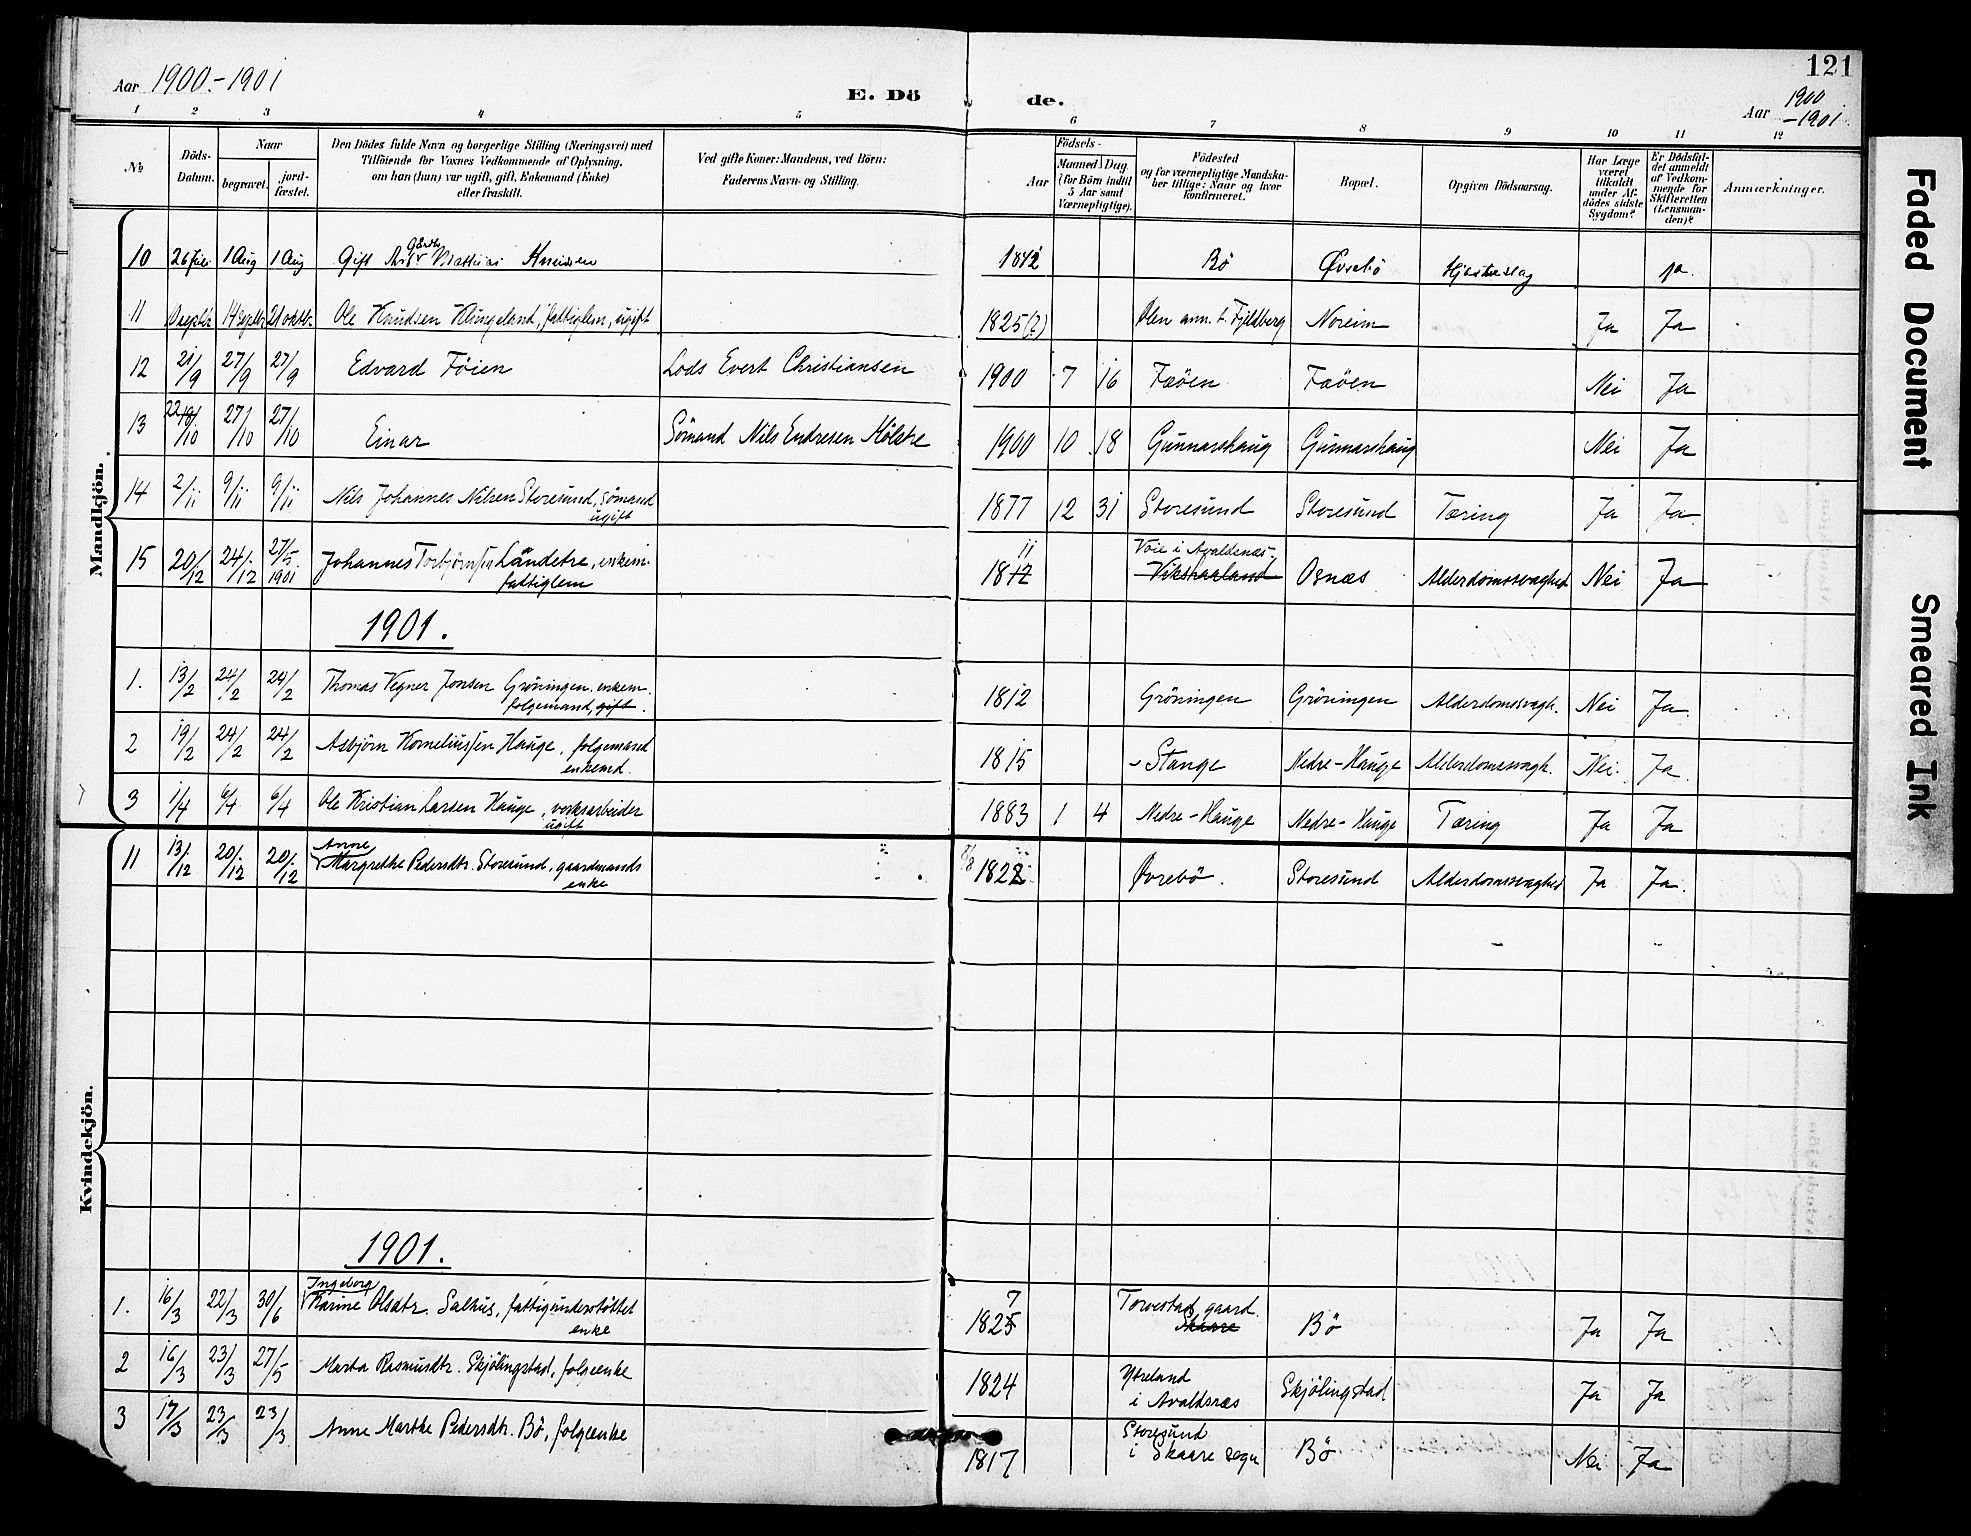 Aar 1900-1901
E. Dö de.
121
Aar 1900-1901
1 2 3 4 5 6 7 8 9 10 11 12
№
Döds-Datum.
Naar
begravet.
jord-fæstet.
Den Dödes fulde Navn og borgerlige Stilling (Næringsvei) med
Tilföiende for Voxnes Vedkommende af Oplysning,
om han (hun) var ugift, gift, Enkemand (Enke)
eller fraskilt.
Ved gifte Koner: Mandens, ved Börn:
Faderens Navn og Stilling.
Födsels-
Aar
Maaned Dag
(for Börn indtil
5 Aar samt
Værnepligtige).
Födested
og for værnepligtige Mandska-
ber tillige: Naar og hvor
konfirmeret.
Bopæl.
Opgiven Dödsaarsag.
Har Læge
været
tilkaldt
under Af-
dödes sidste
Sygdom?
Er Dödsfal-
det anmeldt
af Vedkom-
mende for
Skifteretten
(Lensman-
den)?
Anmærkninger.
Mandkjön.
10 26 Juli 1 Aug 1 Aug Gift Mattias 1842 Bö Øvrebö Hjerteslag Ja
11 septbr 14 septbr 21 oktbr. Ole Knudsen Klungeland, fattiglem, ugift 1825(?) Ølen ann. t. Fjeldberg Noreim Ja Ja
12 21/9 27/9 27/9 Edvard Föien Lods Evert Christiansen 1900 7 16 Fæöen Fæöen Nei Ja
13 22 19/10 27/10 27/10 Einar Sömand Nils Endresen Hölstre 1900 10 18 Gunnarshaug Gunnarshaug Nei Ja
14 2/11 9/11 9/11 Nils Johannes Nilsen Storesund, sömand
ugift 1877 12 31 Storesund Storesund Tæring Ja Ja
15 20/12 24/12 27/5 1901 Johannes Torbjörnsen Låndetre, enkem.
fattiglem 1812 11 Voie i Avaldsnes- Vikshaaland Osnæs Alderdomssvaghed Nei Ja
1901.
1. 13/2 24/2 24/2 Thomas Vegner Jonsen Gröningen, enkem.
folgemand, gift. 1812 Gröningen Gröningen Alderdomssvagh. Nei Ja.
2 19/2 24/2 24/2 Asbjörn Korneliussen Hauge, folgemand
enkemd. 1815 Stange Nedre-Hauge Alderdomssvagh. Nei. Ja.
3 1/4 6/4 6/4 Ole Kristian Larsen Hauge, verksarbeider
ugift 1883 1 4 Nedre-Hauge Nedre-Hauge Tæring Ja Ja
Kvindekjön.
11 13/12 20/12 20/12 Anne
Margrethe Pedersdtr. Storesund, gaardmands
enke 7/8 1822 Øvrebö. Storesund Alderdomssvaghed Ja Ja.
1901.
1. 16/3 22/3 30/6 Ingeborg
Karine Olsdtr. Salhus, fattigunderstöttet
enke 1825 7 Torvestad gaard Skaare Bö Ja Ja
2 16/3 23/3 27/5 Marta Rasmusdtr. Skjölingstad, folgeenke 1824 Ytreland
i Avaldsnæs Skjölingstad Ja Ja
3 17/3 23/3 23/3 Anne Marthe Pedersdtr. Bö, folgeenke 1817 Storesund
i Skaare sogn Bö Nei Ja
Faded Document
Smeared Ink